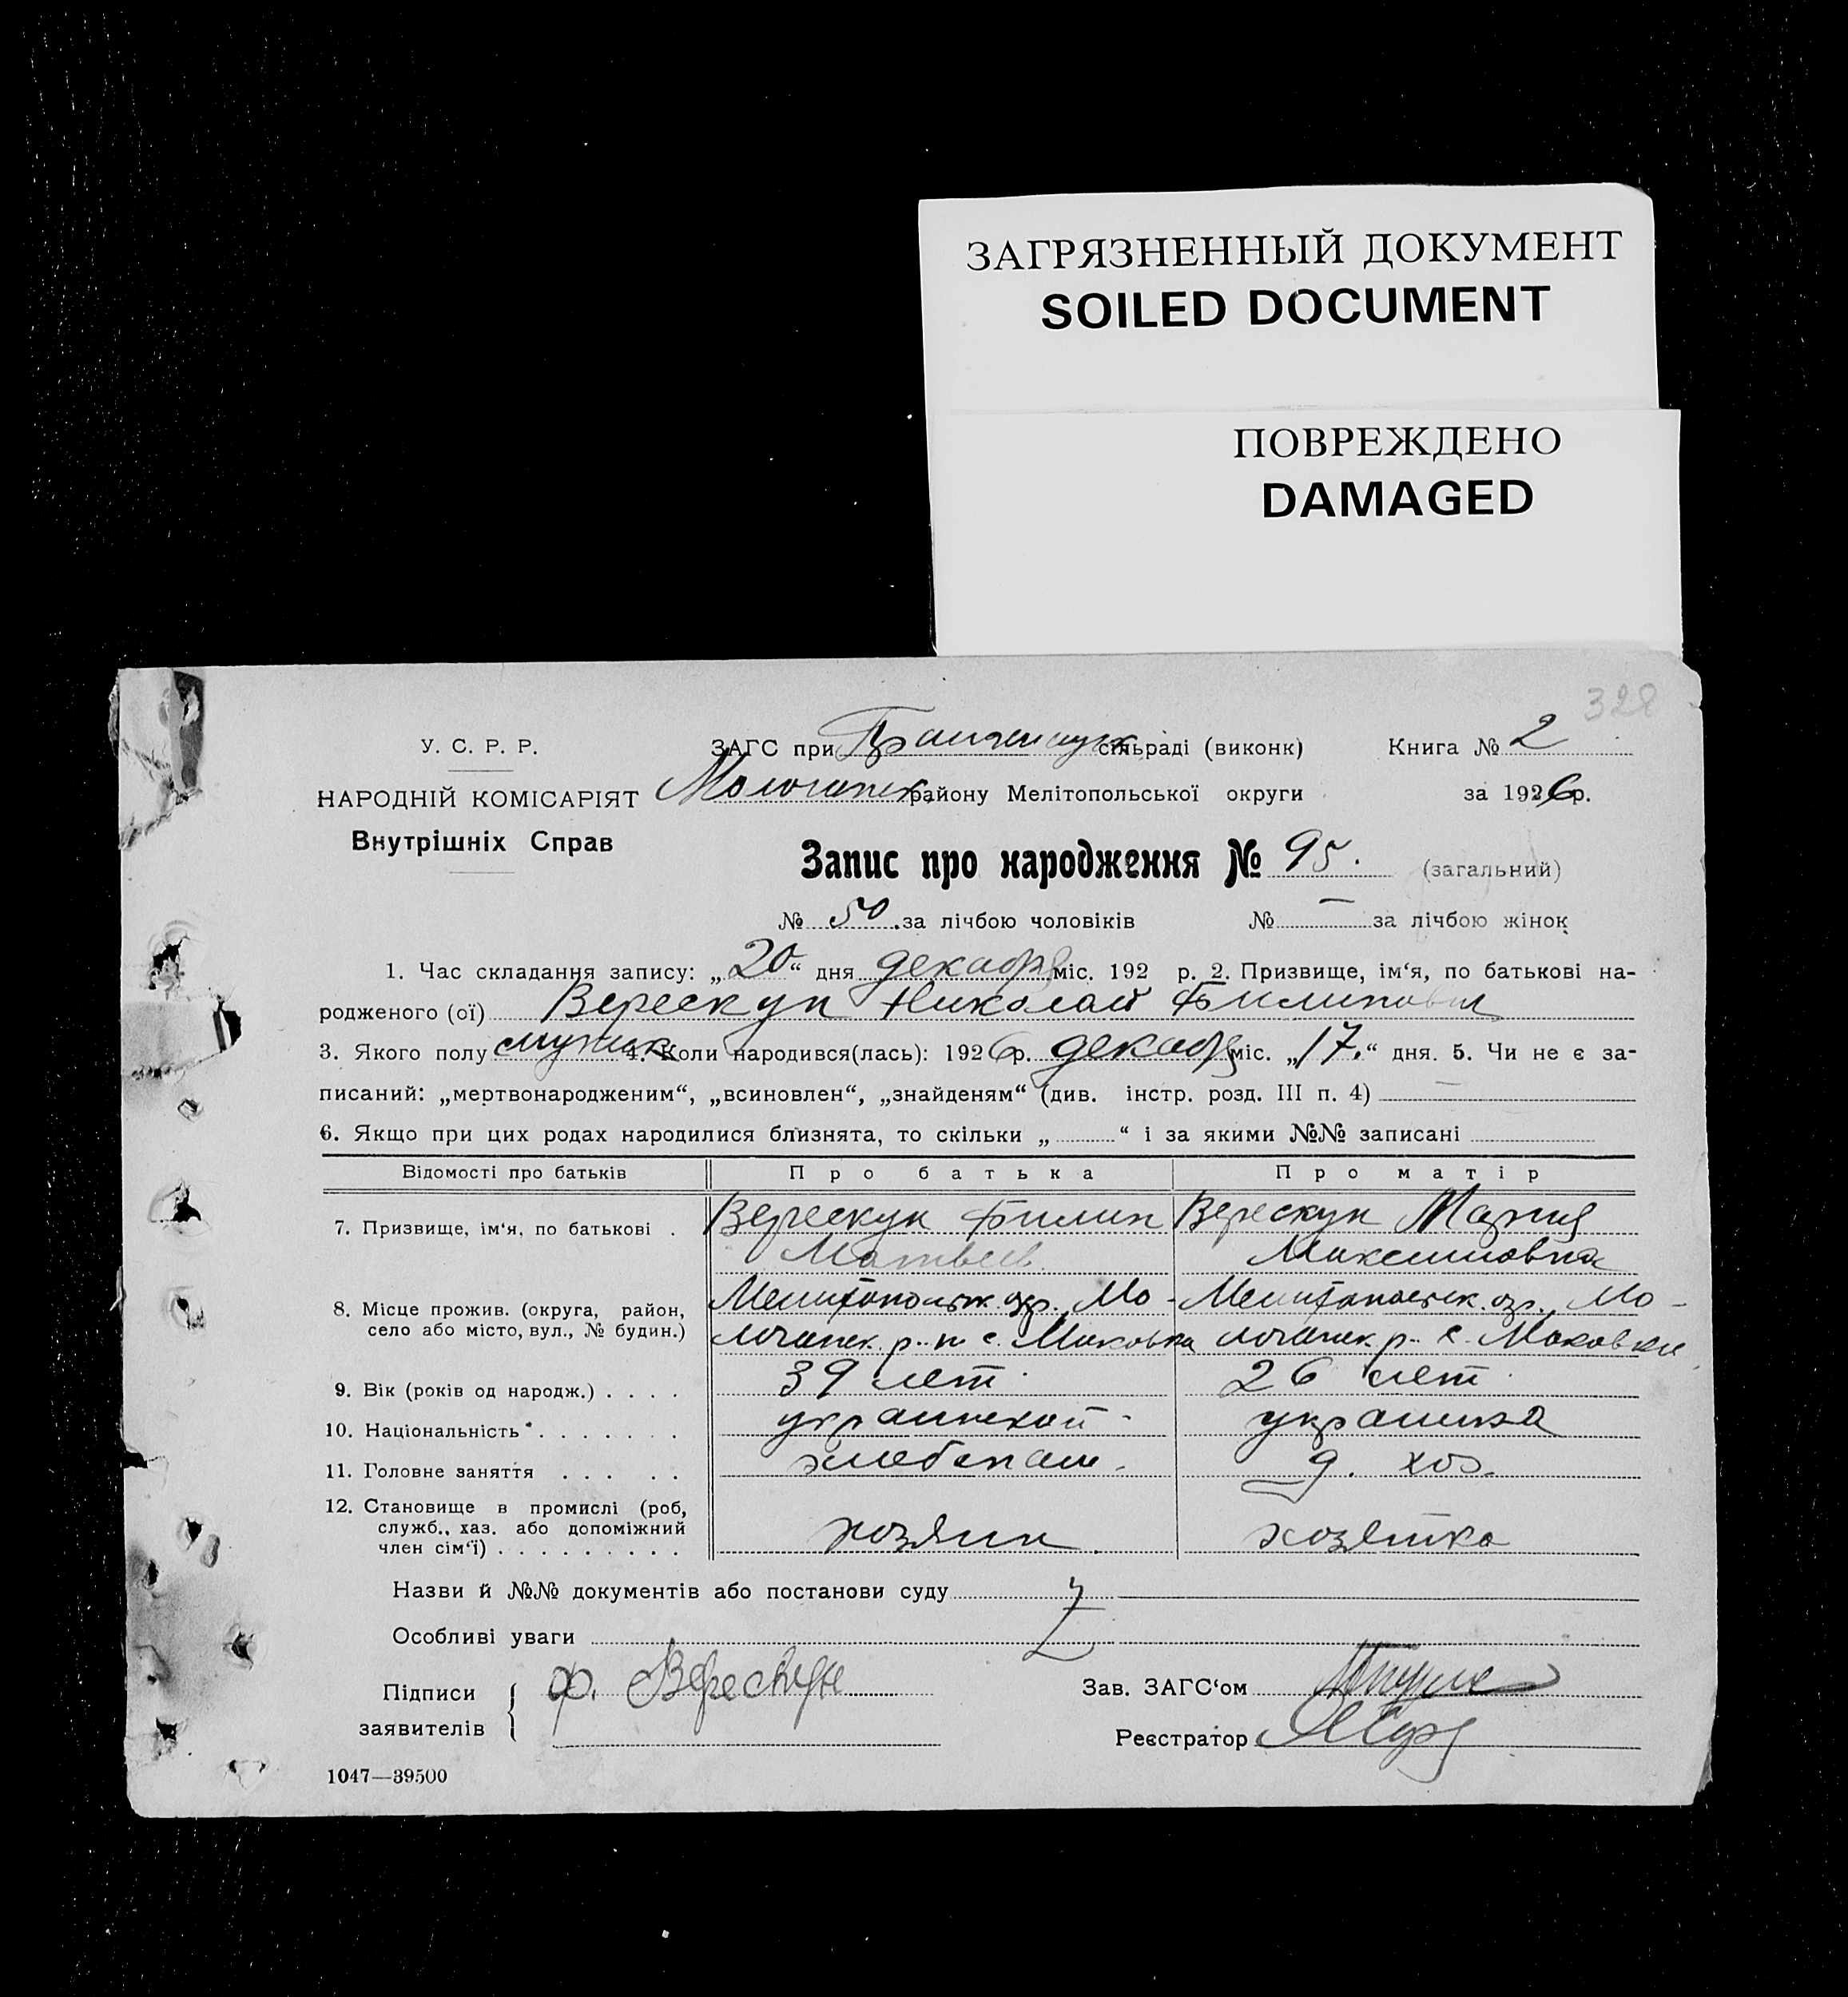 ЗАГРЯЗНЕННЫЙ ДОКУМЕНТ
SOILED DOCUMENT
ПОВРЕЖДЕНО
DAMAGED
328
У. С. Р. Р.
НАРОДНІЙ КОМІСАРІЯТ
Внутрішніх Справ
ЗАГС при сільраді (виконк) Книга № 2
району Мелітопольської округи за 1926 р.
Запис про народження № 95. (загальний)
№ 50 за лічбою чоловіків № — за лічбою жінок
1. Час складання запису: „20“ дня декабря міс. 192 р. 2. Призвище, ім‘я, по батькові на-
родженого (ої) Верескун Николай Филипович
3. Якого полу мужск 4. Коли народився(лась): 1926 р. декабря міс. „17.“ дня. 5. Чи не є за-
писаний: „мертвонародженим“, „всиновлен“, „знайденям“ (див. інстр. розд. III п. 4) —
6. Якщо при цих родах народилися близнята, то скільки „ “ і за якими №№ записані
Відомості про батьків Про батька Про матір
7. Призвище, ім‘я, по батькові . Верескун Филип Верескун Мария
Матвеев. Максимовна
8. Місце прожив. (округа, район, Мелитопольск. окр., Мо- Мелитопольск. окр., Мо-
село або місто, вул., № будин.) лочанск. р-н с. Маковка лочанск. р. с. Маковка
9. Вік (років од народж.) . . . . 39 лет. 26 лет.
10. Національність . . . . . . . украинской украинка
11. Головне заняття . . . . . хлебопаш. д. хоз.
12. Становище в промислі (роб,
служб., хаз. або допоміжний
член сім‘ї) . . . . . . . . . хозяин. хозяйка
Назви й №№ документів або постанови суду
Особливі уваги
Підписи ф. Верескун Зав. ЗАГС‘ом
заявителів
Реєстратор
1047—39500